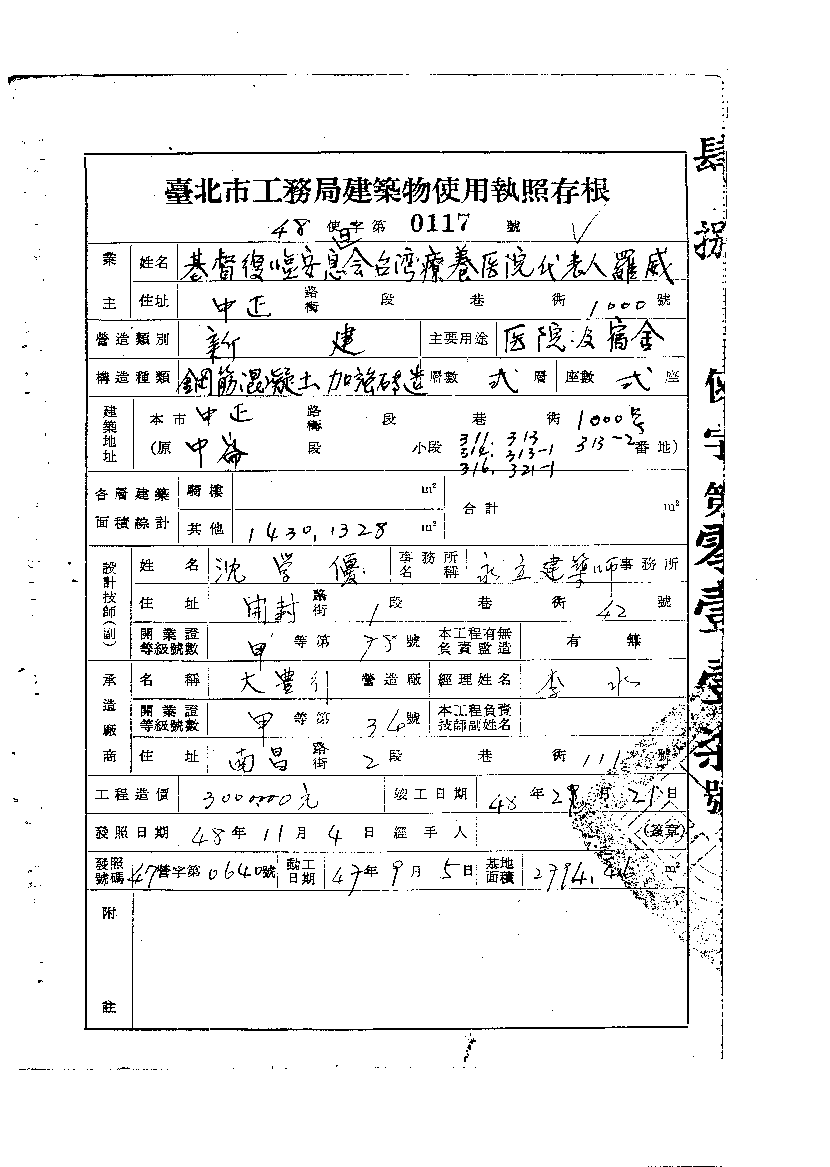 臺北市工務局建築物使用執照存根
48 使字第 0117 號
業主 姓名 基督復臨安息日会台湾療養医院代表人羅威
住址 中正 路街 段 巷 街 1000 號
營造類別 新建 主要用途 医院及宿舍
構造種類 鋼筋混凝土加強磚造 層數 弍 層 座數 弍 座
建築地址 本市 中正 路街 段 巷 街 1000号
(原 中崙 段 小段 311. 313 314. 313-1 313-2 316. 321-1 番地)
各層建築面積總計 騎樓 m² 合計 m²
其他 1430.1328 m²
設計技師(副) 姓名 沈学優 事務所名稱 永立建築師事務所
住址 開封 路街 1 段 巷 街 42 號
開業證等級號數 甲 等第 號 本工程有無負責監造 有 無
承造廠商 名稱 大豊行 營造廠 經理姓名 李水
開業證等級號數 甲 等第 34 號 本工程負責技師副姓名
住址 南昌 路街 2 段 巷 街 111 號
工程造價 元 竣工日期 48 年 月 21 日
發照日期 48 年 11 月 4 日 經手人 (簽章)
發照號碼 47 營字第 0640 號 動工日期 47 年 9 月 5 日 基地面積 2794.46 m²
附註
肆捌 使字第零壹壹柒號